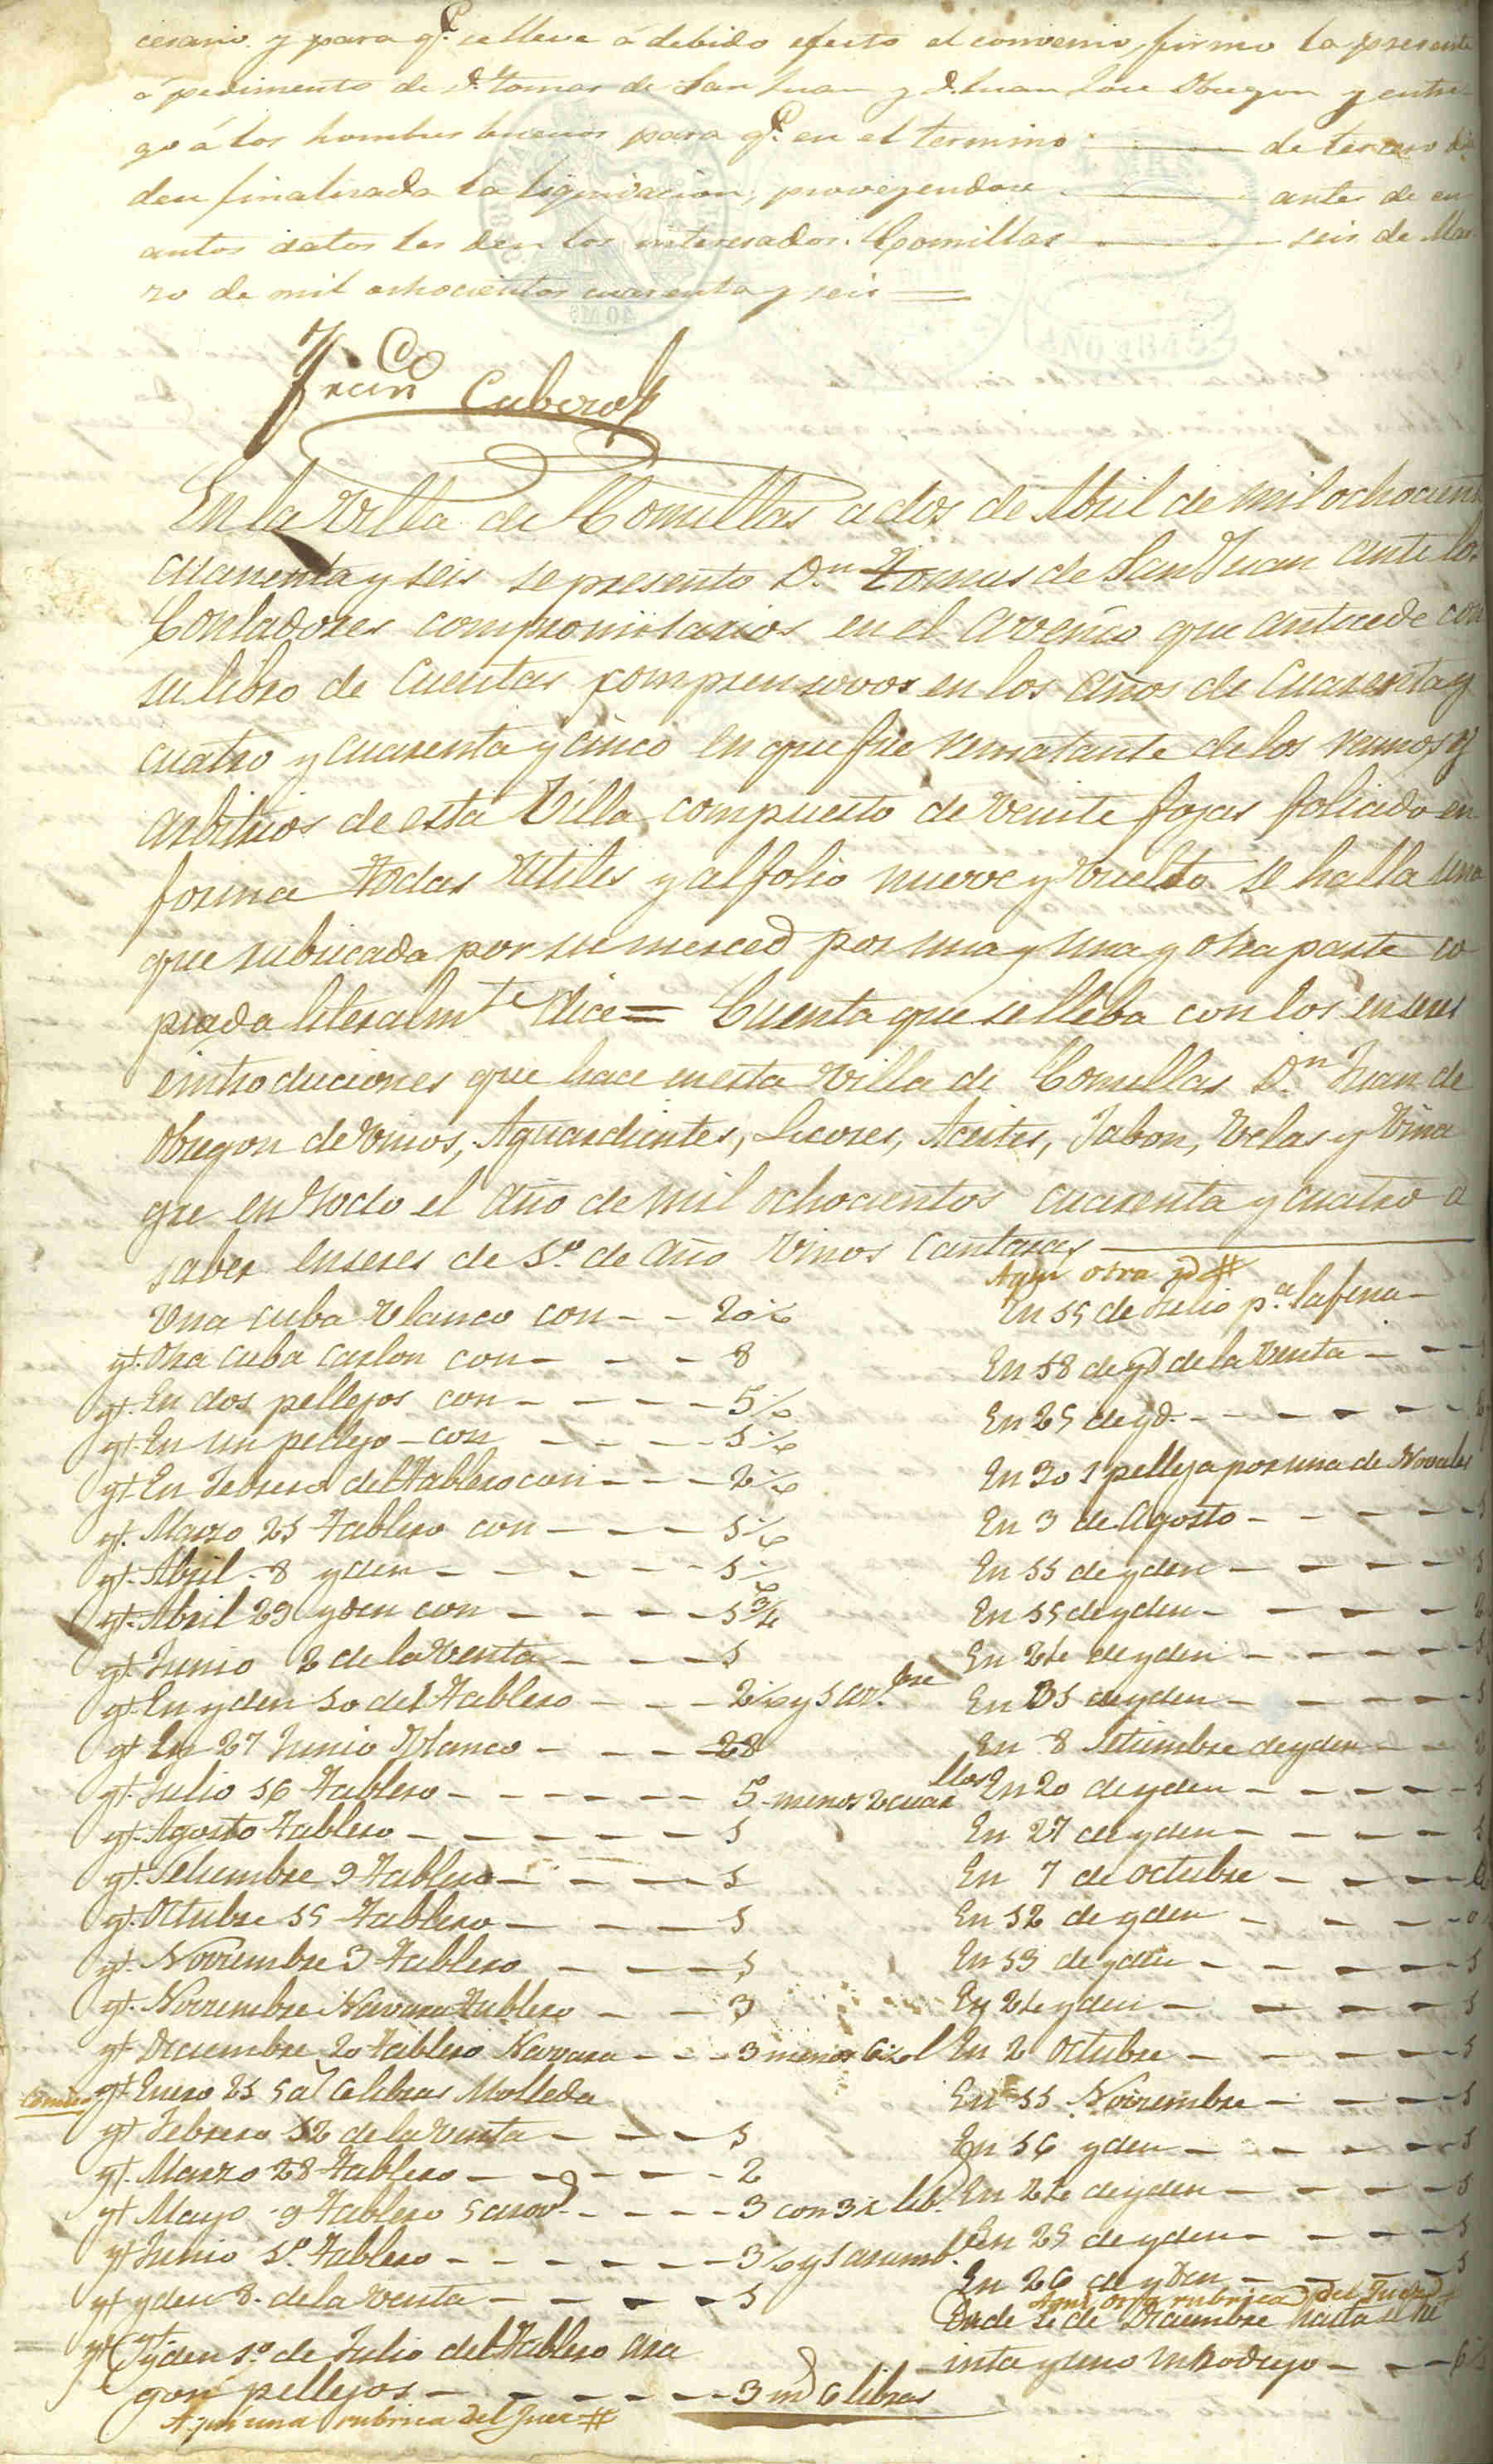 cesario. y para q.e se lleve á debido efecto el convenio, firmo la presente
á pedimento de D. Tomas de San Juan y D. Juan José Obregon y entre
go á los hombres buenos para q.e en el termino de tercero dia
den finalizada la liquidacion, proveyendose antes de cu
antos datos les den los interesados. Comillas seis de Mar
zo de mil ochocientos cuarenta y seis =
Fran.co Cubero
En la Villa de Comillas a dos de Abril de mil ochocient
cuarenta y seis se presento D.n Tomas de San Juan ante los
Contadores compromisarios en el avenio que antecede con
su libro de cuentas comprensivos en los años de cuarenta y
cuatro y cuarenta y cinco en que fue rematante de los ramos y
arbitrios de esta Villa compuesto de veinte fojas foliado en
forma todas utiles y al folio nueve y vuelto se halla una
que rubricada por su merced por una y una y otra parte co
piada literalm.te dice = Cuenta que se lleba con los enseres
é introduciones que hace en esta Villa de Comillas D.n Juan de
Obregon de vinos, Aguardientes, Licores, Aceites, Jabon, Velas y Vina
gre en todo el año de mil ochocientos cuarenta y cuatro a
saber enseres de 1.o de año Vinos Cantaras
Una cuba blanco con - - 20½
yt. Otra cuba carlon con - - - 8
yt. En dos pellejos con - - - - 5½
yt. En un pellejo - con - - - - 1½
yt. En Febrero del Tablero con - - - 2½
yt. Marzo 21 Tablero con - - - - 1½
yt. Abril - 8 yden - - - - - 1½
yt. Abril 29 yden con - - - - 1¾
yt. Junio 2 de la Venta - - - 1
yt. En yden 10 del Tablero - - - 2½ y 1 ar.
yt. En 27 Junio Blanco - - - 28
yt. Julio 16 Tablero - - - - - - 5 menos 2 cuar llos
yt. Agosto Tablero - - - - - - 1
yt. Setiembre 9 Tablero - - - - 1
yt. Octubre 11 Tablero - - - - 1
yt. Noviembre 3 Tablero - - - 1
yt. Noviembre Navarra Tablero - - 3
yt. Diciembre 20 Tablero Navarra - - - 3 menos
yt. Enero 21 libras Molleda
yt. Febrero 12 de la Venta - - - 1
yt. Marzo 28 Tablero - - - - - 2
yt. Mayo - 9 Tablero - - - - 3 con
yt. Junio 1.o Tablero - - - - - - 3½ y
yt. yden 8. de la Venta - - - - 1
yt. yden 1.o de Julio del Tablero Ara
gon pellejos - - - - - - 3 m.s 6 libras
Aqui una rubrica del Juez #
Aqui otra yd #
En 11 de Julio p.a la fena -
En 18 de yd de la Venta - - -
En 21 de yd. - - - - - -
En 30 1 pelleja por una de Novales
En 3 de Agosto - - - - -
En 11 de yden - - - - -
En 11 de yden - - - - -
En 24 de yden - - - - -
En 31 de yden - - - - -
En 8 Setiembre de yden - -
En 20 de yden - - - - -
En 27 de yden - - - -
En 7 de Octubre - - - -
En 12 de yden - - - -
En 13 de yden - - - - -
En 24 yden - - - - -
En 2 Octubre - - - - - 1
En 11 Noviembre - - - - 1
En 16 yden - - - - - 1
En 24 de yden - - - - 1
En 25 de yden - - - - 1
En 26 de yden - - - - 1
Aqui otra rubrica del Juez #
Desde 1.o de Diciembre hasta el tre
inta y uno introdujo - - -